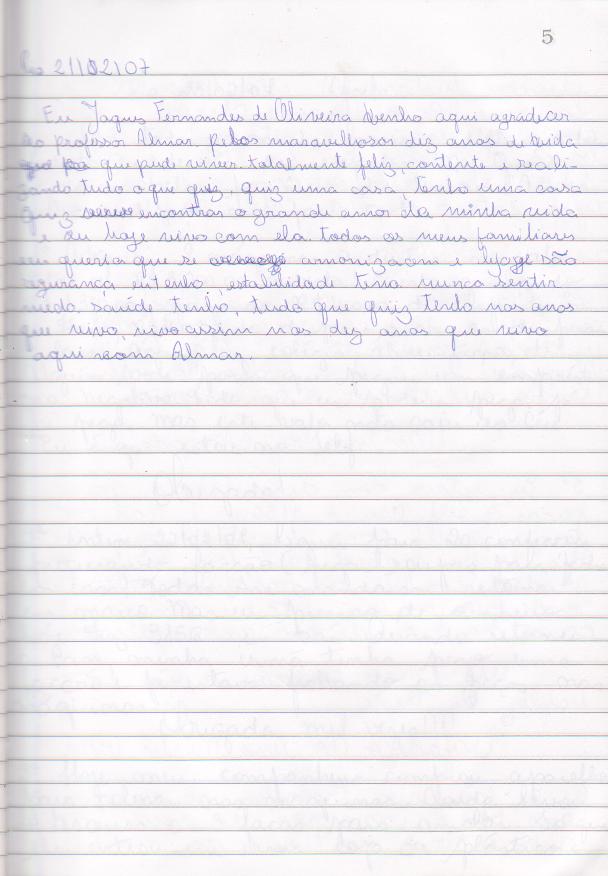 5
21/02/07
Eu Jaques Fernandes de Oliveira venho aqui agradecer
ao professor Almar. pelos maravelhosos dez anos de vida
que pude viver. totalmente feliz, contente e reali-
zando tudo o que quiz, quiz uma casa, tenho uma casa
quiz encontrar o grande amor da minha vida
e eu hoje vivo com ela. todos os meus familiares
eu queria que se armonizacem e hoje são
segurança eu tenho, estabilidade tenho nunca sentir
medo. saúde tenho, tudo que quiz tenho nos anos
que vivo, vivo assim nos dez anos que vivo
aqui com Almar.